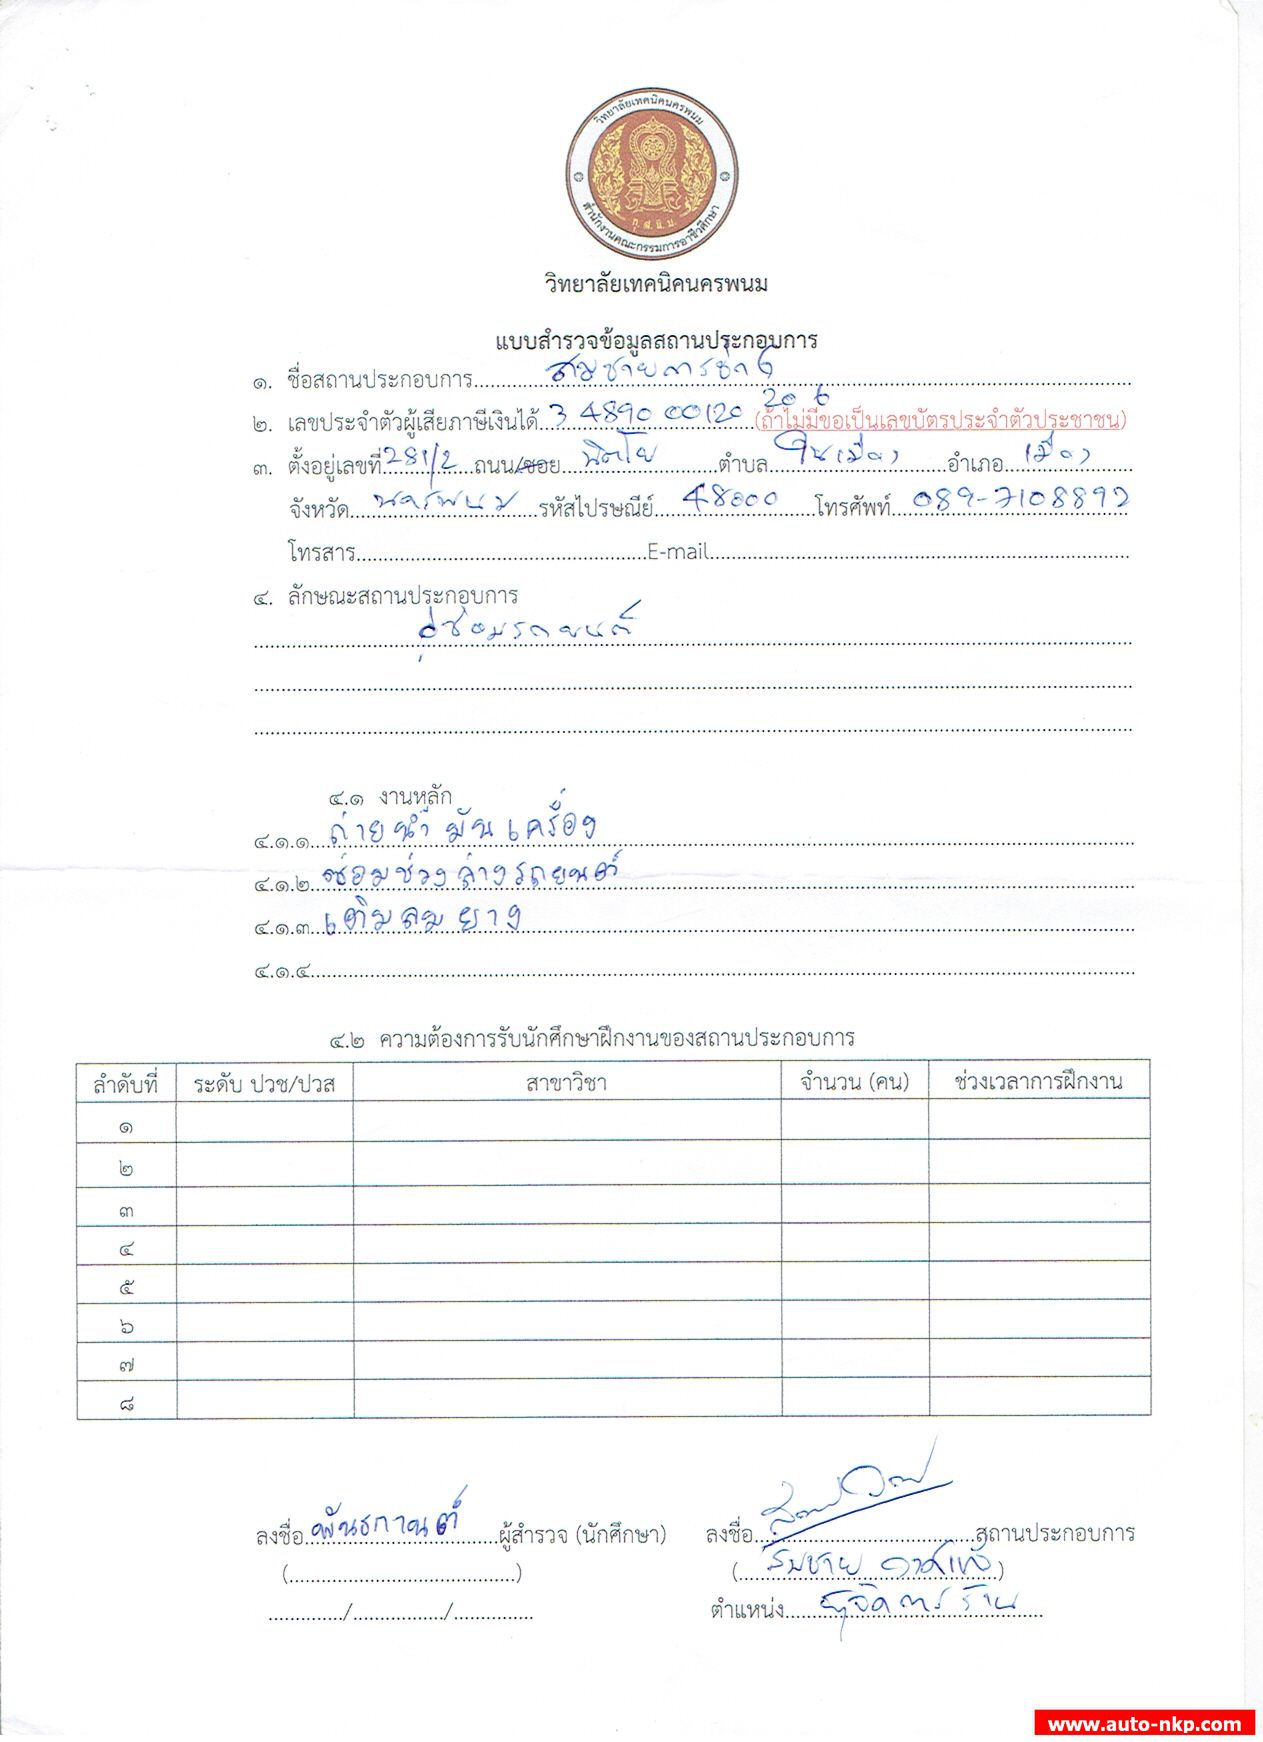 วิทยาลัยเทคนิคนครพนม
สำนักงานคณะกรรมการอาชีวศึกษา
วิทยาลัยเทคนิคนครพนม
แบบสำรวจข้อมูลสถานประกอบการ
๑. ชื่อสถานประกอบการ สมชายการช่าง
๒. เลขประจำตัวผู้เสียภาษีเงินได้ 3 4890 00120 20 6 (ถ้าไม่มีขอเป็นเลขบัตรประจำตัวประชาชน)
๓. ตั้งอยู่เลขที่ 281/2 ถนน/ซอย นิตโย ตำบล ในเมือง อำเภอ เมือง
จังหวัด นครพนม รหัสไปรษณีย์ 48000 โทรศัพท์ 089-7108892
โทรสาร E-mail
๔. ลักษณะสถานประกอบการ
อู่ซ่อมรถยนต์
๔.๑ งานหลัก
๔.๑.๑ ถ่ายน้ำมันเครื่อง
๔.๑.๒ ซ่อมช่วงล่างรถยนต์
๔.๑.๓ เติมลมยาง
๔.๑.๔
๔.๒ ความต้องการรับนักศึกษาฝึกงานของสถานประกอบการ
ลำดับที่ ระดับ ปวช/ปวส สาขาวิชา จำนวน (คน) ช่วงเวลาการฝึกงาน
๑
๒
๓
๔
๕
๖
๗
๘
ลงชื่อ พันธกานต์ ผู้สำรวจ (นักศึกษา) ลงชื่อ สถานประกอบการ
(สมชาย)
ตำแหน่ง ผู้จัดการร้าน
www.auto-nkp.com